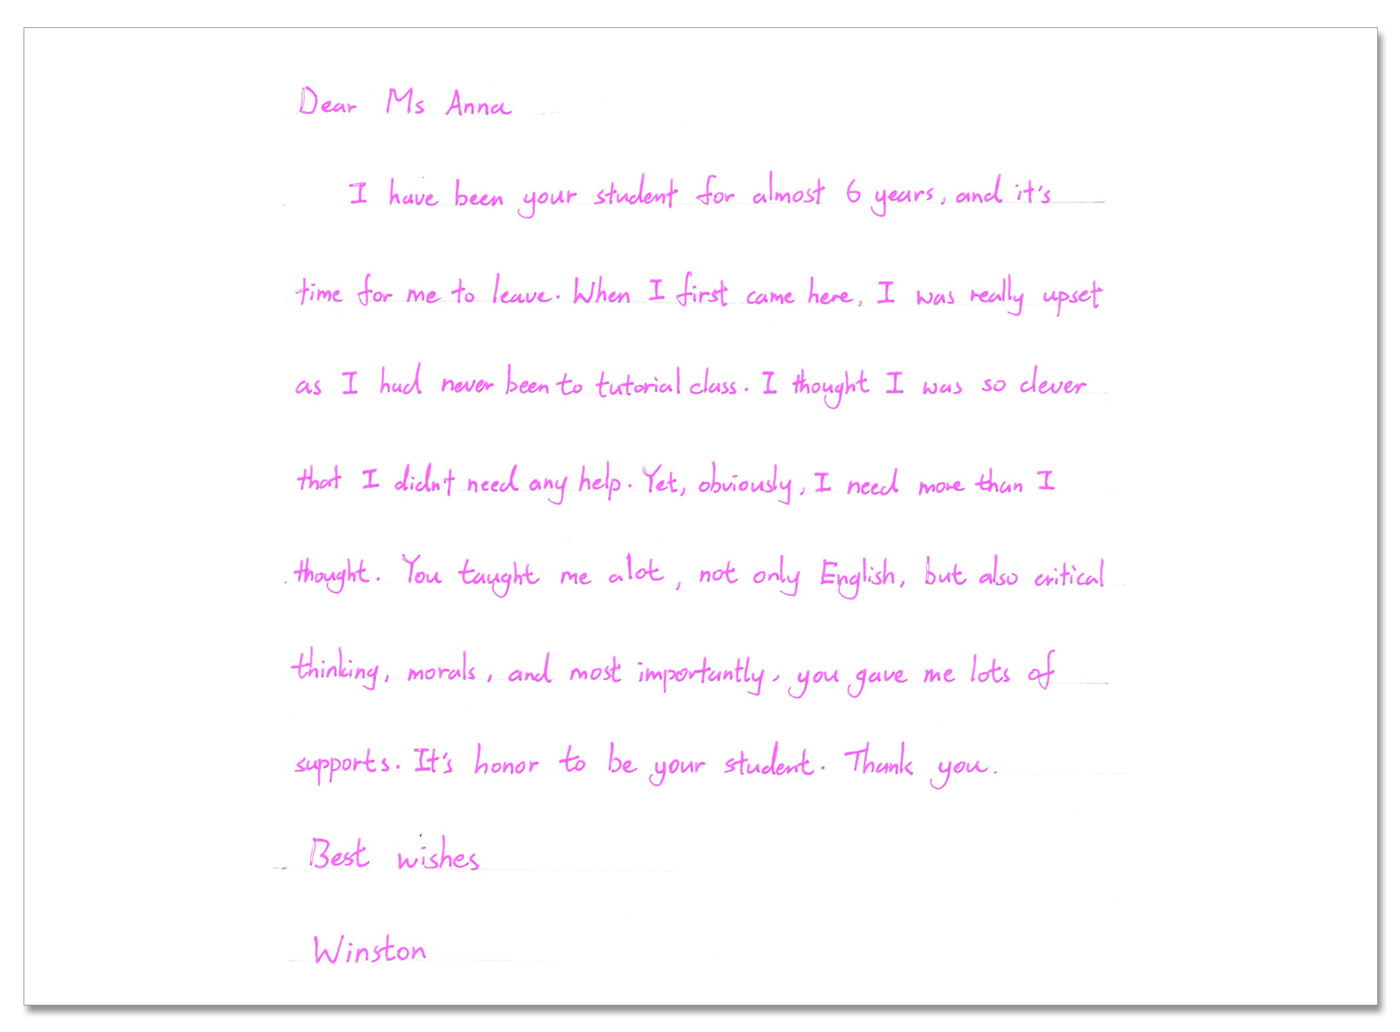 Dear Ms Anna
I have been your student for almost 6 years, and it's
time for me to leave. When I first came here, I was really upset
as I had never been to tutorial class. I thought I was so clever
that I didn't need any help. Yet, obviously, I need more than I
thought. You taught me alot, not only English, but also critical
thinking, morals, and most importantly, you gave me lots of
supports. It's honor to be your student. Thank you.
Best wishes
Winston